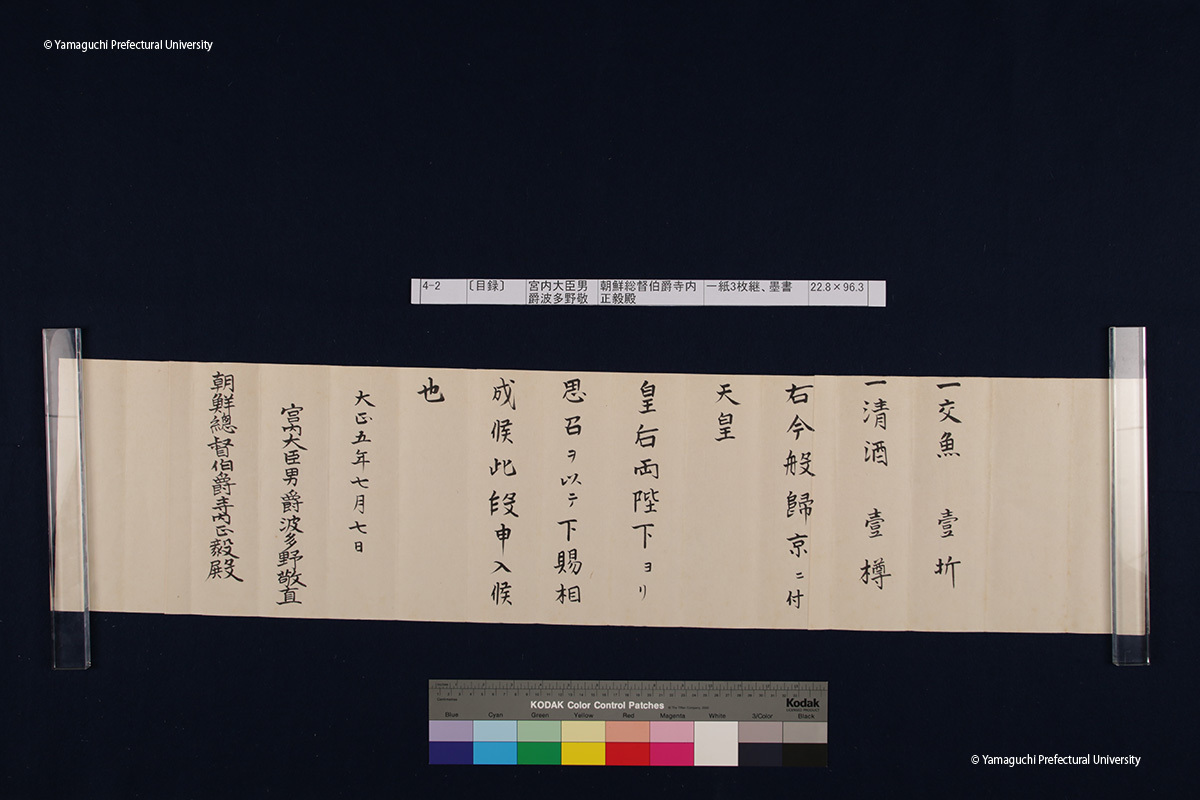 © Yamaguchi Prefectural University
4-2 〔目録〕 宮内大臣男爵波多野敬 朝鮮総督伯爵寺内正毅殿 一紙3枚継、墨書 22.8×96.3
一交魚　壹折
一清酒　壹樽
右今般歸京ニ付
天皇
皇后両陛下ヨリ
思召ヲ以テ下賜相
成候此段申入候
也
大正五年七月七日
宮内大臣男爵波多野敬直
朝鮮總督伯爵寺内正毅殿
KODAK Color Control Patches
Kodak
LICENSED PRODUCT
Blue Cyan Green Yellow Red Magenta White 3/Color Black
© Yamaguchi Prefectural University